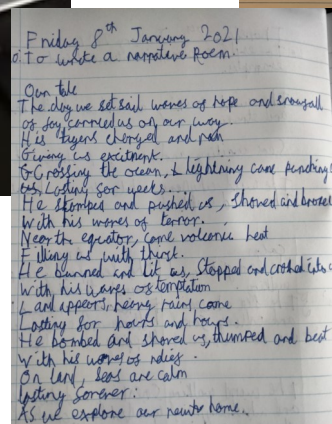 Friday 8th January 2021
To write a narrative Poem.
Our tale
The day we set sail waves of hope and snowfall
of joy carried us on our way.
His tigers charged and ran
Giving us excitment.
Crossing the ocean, lightning came punching
Lasting for weeks...
He stomped and pushed us, shoved and broke
With his waves of terror.
Near the equator, came volcanic heat
Filling us with thirst.
He burned and lit us, stopped and
With his waves of temptation
Land appears, heavy rain, came
Lasting for hours and hours.
He bombed and shoved us, thumped and beat
With his waves of
On land, seas are calm
lasting forever.
As we explore our new home.